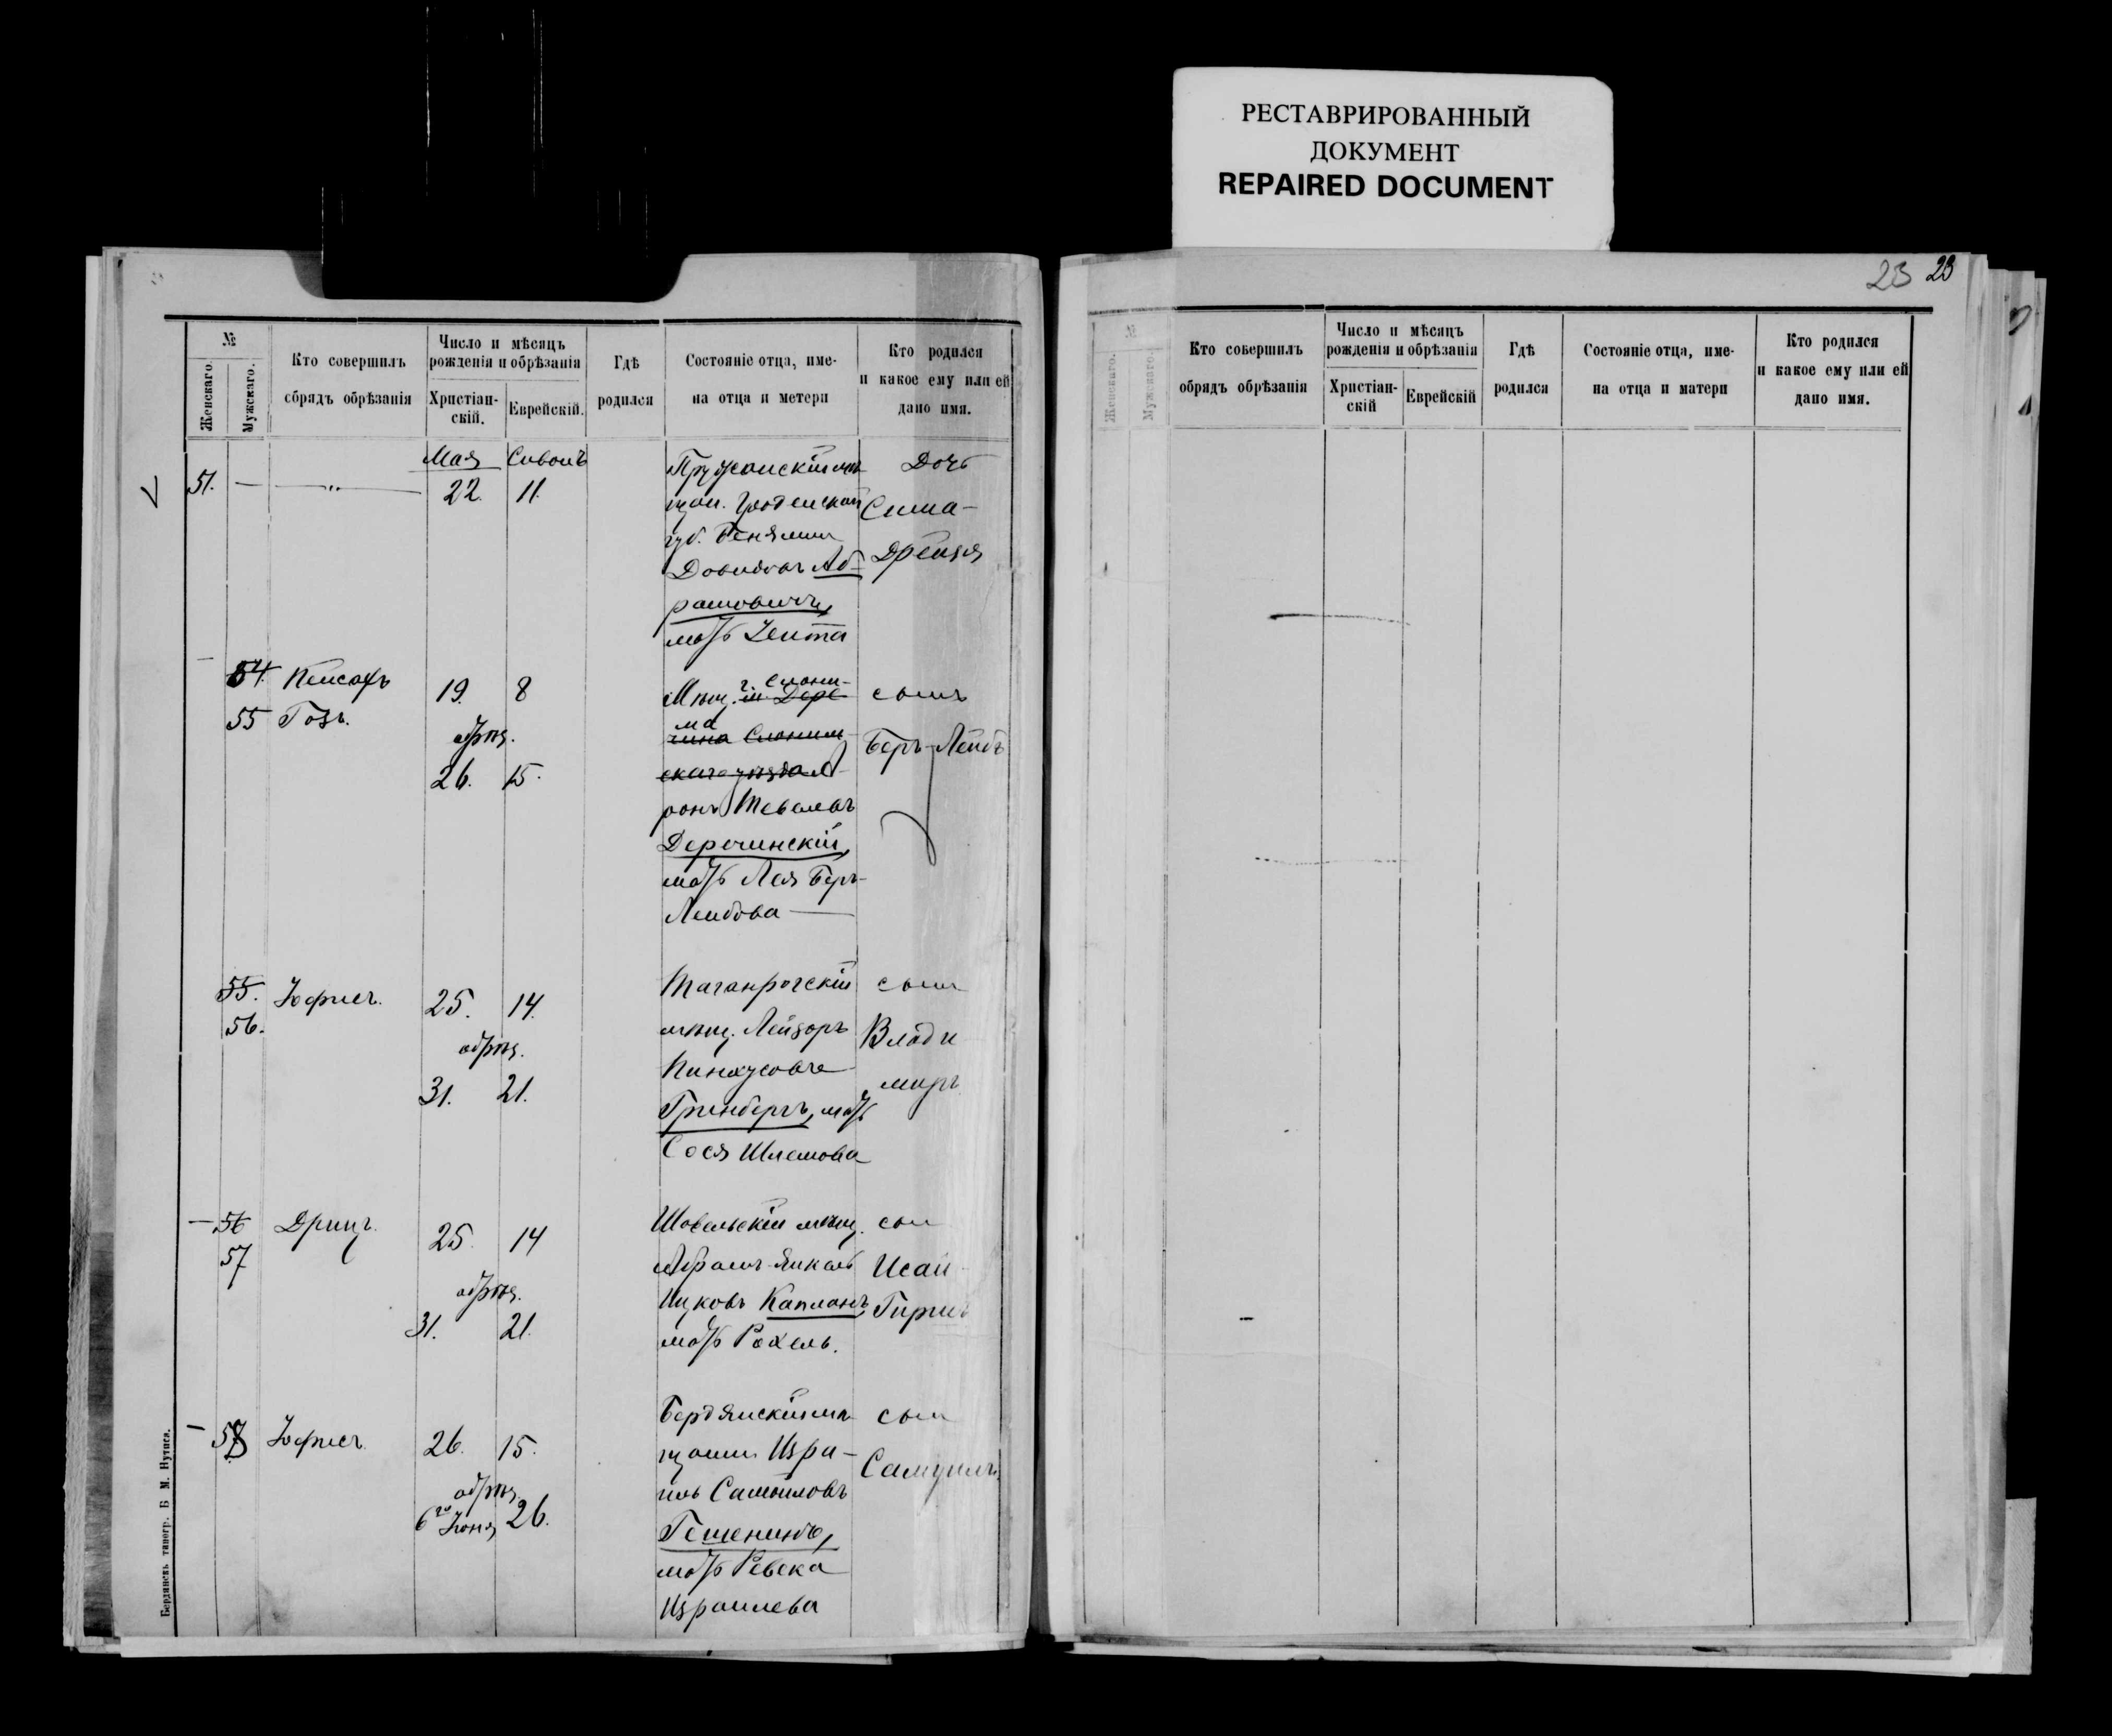 РЕСТАВРИРОВАННЫЙ
ДОКУМЕНТ
REPAIRED DOCUMENT
№
Женскаго.
Мужскаго.
Кто совершилъ
обрядъ обрѣзанія
Число и мѣсяцъ
рожденія и обрѣзанія
Христіан-
скій.
Еврейскій.
Гдѣ
родился
Состояніе отца, име-
на отца и метери
Кто родился
и какое ему или ей
дано имя.
Мая Сивонъ
51. — — „ — 22. 11.
Пружанскій мѣ-
щан. Гродненской
губ. Бенямин
Довидовъ Аб-
рамовичъ,
мать Зелта
Дочь
Сима-
Дрейзя
54. 55 Кписафъ
Гозъ.
19. 8
обрѣз.
26. 15.
Мѣщ. г. Слони-
м. Дере
ма
чина Слоним-
скаго уѣзда А-
ронъ Тевелевъ
Деречинскій,
мать Лея Беръ-
Лейбова —
сынъ
Беръ-Лейбъ
55. 56. Юфис.
25. 14.
обрѣз.
31. 21.
Таганрогскій
мѣщ. Лейзоръ
Пинхусовъ
Гринбергъ, мать
Сося Шлемова
сын
Влади
миръ
56 57 Дриц.
25. 14
обрѣз.
31. 21.
Шавельскій мѣщ.
Абрам-Янкель
Ицковъ Капланъ,
мать Рохель.
сын
Исай-
Гирш
58 Юфис.
26. 15.
обрѣз.
6го Юня, 26.
Бердянскій мѣ-
щанин Изра-
иль Самойловъ
мать Ревека
Израилева
сын
Самуилъ.
Бердянскъ типогр. Б М. Нутиса.
23 23
№
Женскаго.
Мужскаго.
Кто совершилъ
обрядъ обрѣзанія
Число и мѣсяцъ
рожденія и обрѣзанія
Христіан-
скій
Еврейскій
Гдѣ
родился
Состояніе отца, име-
на отца и матери
Кто родился
и какое ему или ей
дано имя.